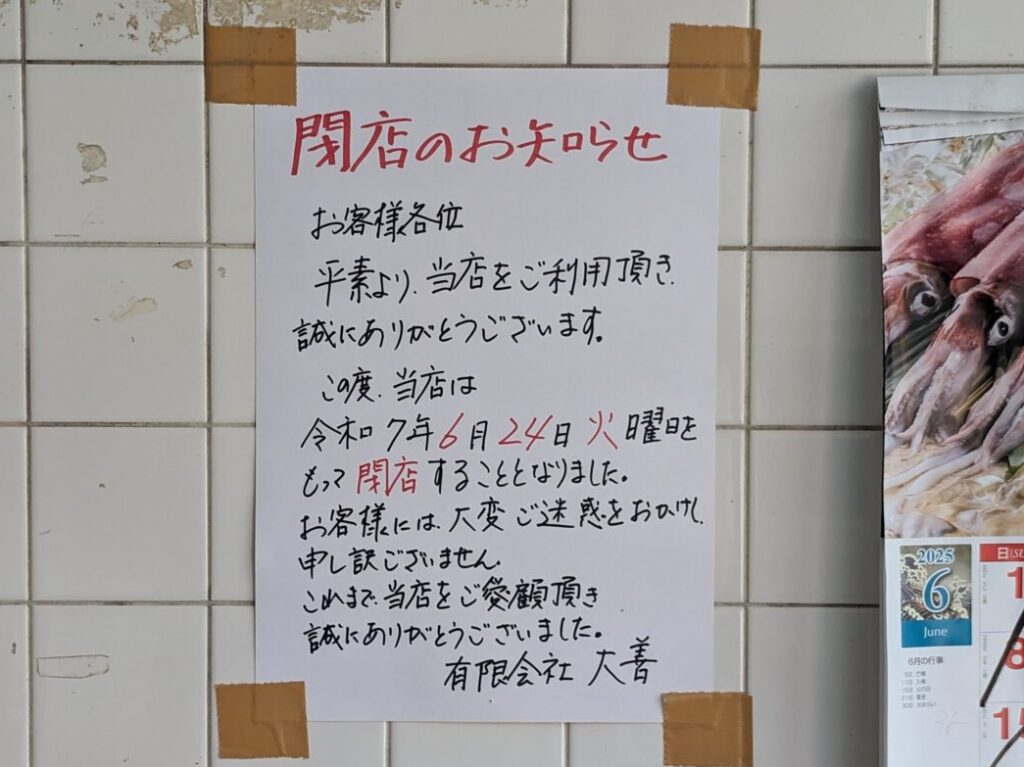 閉店のお知らせ
お客様各位
平素より、当店をご利用頂き、
誠にありがとうございます。
この度、当店は
令和7年6月24日火曜日を
もって閉店することとなりました。
お客様には、大変ご迷惑をおかけし、
申し訳ございません。
これまで、当店をご愛顧頂き
誠にありがとうございました。
有限会社 大善
2025
6
June
6月の行事
日(SU
1
8
15